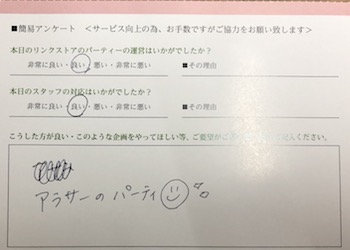 ■簡易アンケート <サービス向上の為、お手数ですがご協力をお願い致します>
本日のリンクストアのパーティーの運営はいかがでしたか?
非常に良い・良い・悪い・非常に悪い ■その理由
本日のスタッフの対応はいかがでしたか?
非常に良い・良い・悪い・非常に悪い ■その理由
こうした方が良い・このような企画をやってほしい等、ご要望が
アラサーのパーティ